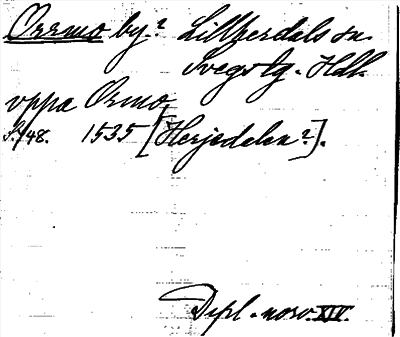 Orrmo by? Lillherdals sn.
Svegs tg. Hdl.
vppa Ormo
S. 748. 1535 [Herjedalen?].
Dipl. norv. XIV.